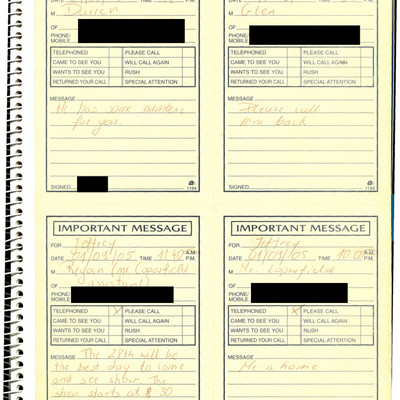 DATE TIME
M Darren
M Glen
OF
OF
PHONE/
MOBILE
PHONE/
MOBILE
TELEPHONED PLEASE CALL
CAME TO SEE YOU WILL CALL AGAIN
WANTS TO SEE YOU RUSH
RETURNED YOUR CALL SPECIAL ATTENTION
TELEPHONED PLEASE CALL
CAME TO SEE YOU WILL CALL AGAIN
WANTS TO SEE YOU RUSH
RETURNED YOUR CALL SPECIAL ATTENTION
MESSAGE
He has some numbers
for you.
MESSAGE
Please call
him back
SIGNED 1184
SIGNED 1184
IMPORTANT MESSAGE
FOR Jeffrey
DATE 01/09/05 TIME 11.40 A.M. P.M.
M Regan (Mr Coperfield
assistant)
OF
PHONE/
MOBILE
TELEPHONED X PLEASE CALL
CAME TO SEE YOU WILL CALL AGAIN
WANTS TO SEE YOU RUSH
RETURNED YOUR CALL SPECIAL ATTENTION
MESSAGE The 28th will be
the best day to come
and see show. The
show starts at 8 30
IMPORTANT MESSAGE
FOR Jeffrey
DATE 01/09/05 TIME 10.00 A.M. P.M.
M Mr. Coperfield
OF
PHONE/
MOBILE
TELEPHONED X PLEASE CALL
CAME TO SEE YOU WILL CALL AGAIN
WANTS TO SEE YOU RUSH
RETURNED YOUR CALL SPECIAL ATTENTION
MESSAGE
He is home